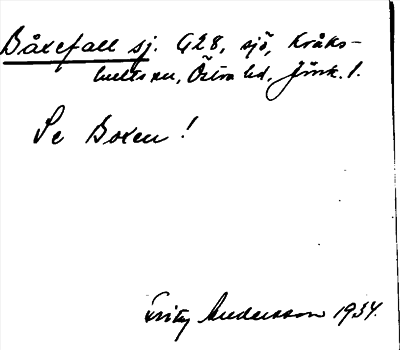 Båxefall sj. G28, sjö, Kråks-
hults sn, Östra hd, Jönk. l.
Se Boxen!
Fritz Andersson 1934.